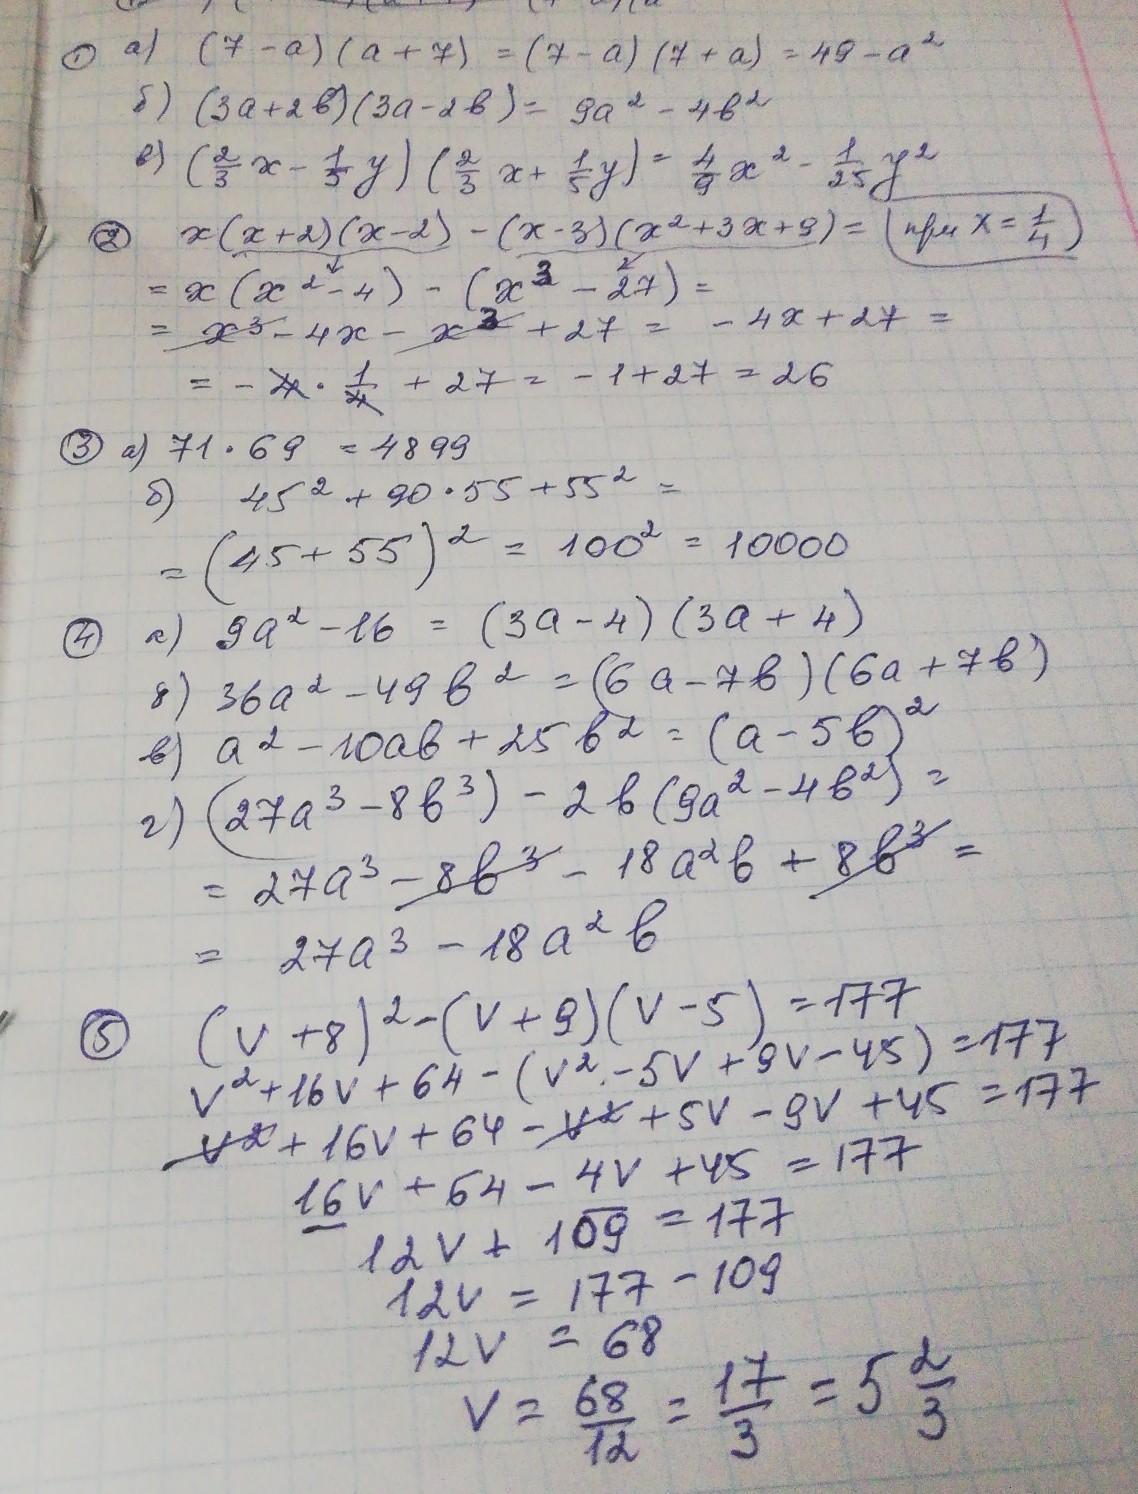 ① а) (7 - a)(a + 7) = (7 - a)(7 + a) = 49 - a²
б) (3a + 2b)(3a - 2b) = 9a² - 4b²
в) (2/3 x - 1/5 y)(2/3 x + 1/5 y) = 4/9 x² - 1/25 y²
② x(x+2)(x-2) - (x-3)(x²+3x+9) = (при x = 1/4)
= x(x² - 4) - (x³ - 27) =
= x³ - 4x - x³ + 27 = -4x + 27 =
= -4 · 1/4 + 27 = -1 + 27 = 26
③ а) 71 · 69 = 4899
б) 45² + 90 · 55 + 55² =
= (45 + 55)² = 100² = 10000
④ а) 9a² - 16 = (3a - 4)(3a + 4)
б) 36a² - 49b² = (6a - 7b)(6a + 7b)
в) a² - 10ab + 25b² = (a - 5b)²
г) (27a³ - 8b³) - 2b(9a² - 4b²) =
= 27a³ - 8b³ - 18a²b + 8b³ =
= 27a³ - 18a²b
⑤ (v + 8)² - (v + 9)(v - 5) = 177
v² + 16v + 64 - (v² - 5v + 9v - 45) = 177
v² + 16v + 64 - v² + 5v - 9v + 45 = 177
16v + 64 - 4v + 45 = 177
12v + 109 = 177
12v = 177 - 109
12v = 68
v = 68/12 = 17/3 = 5 2/3